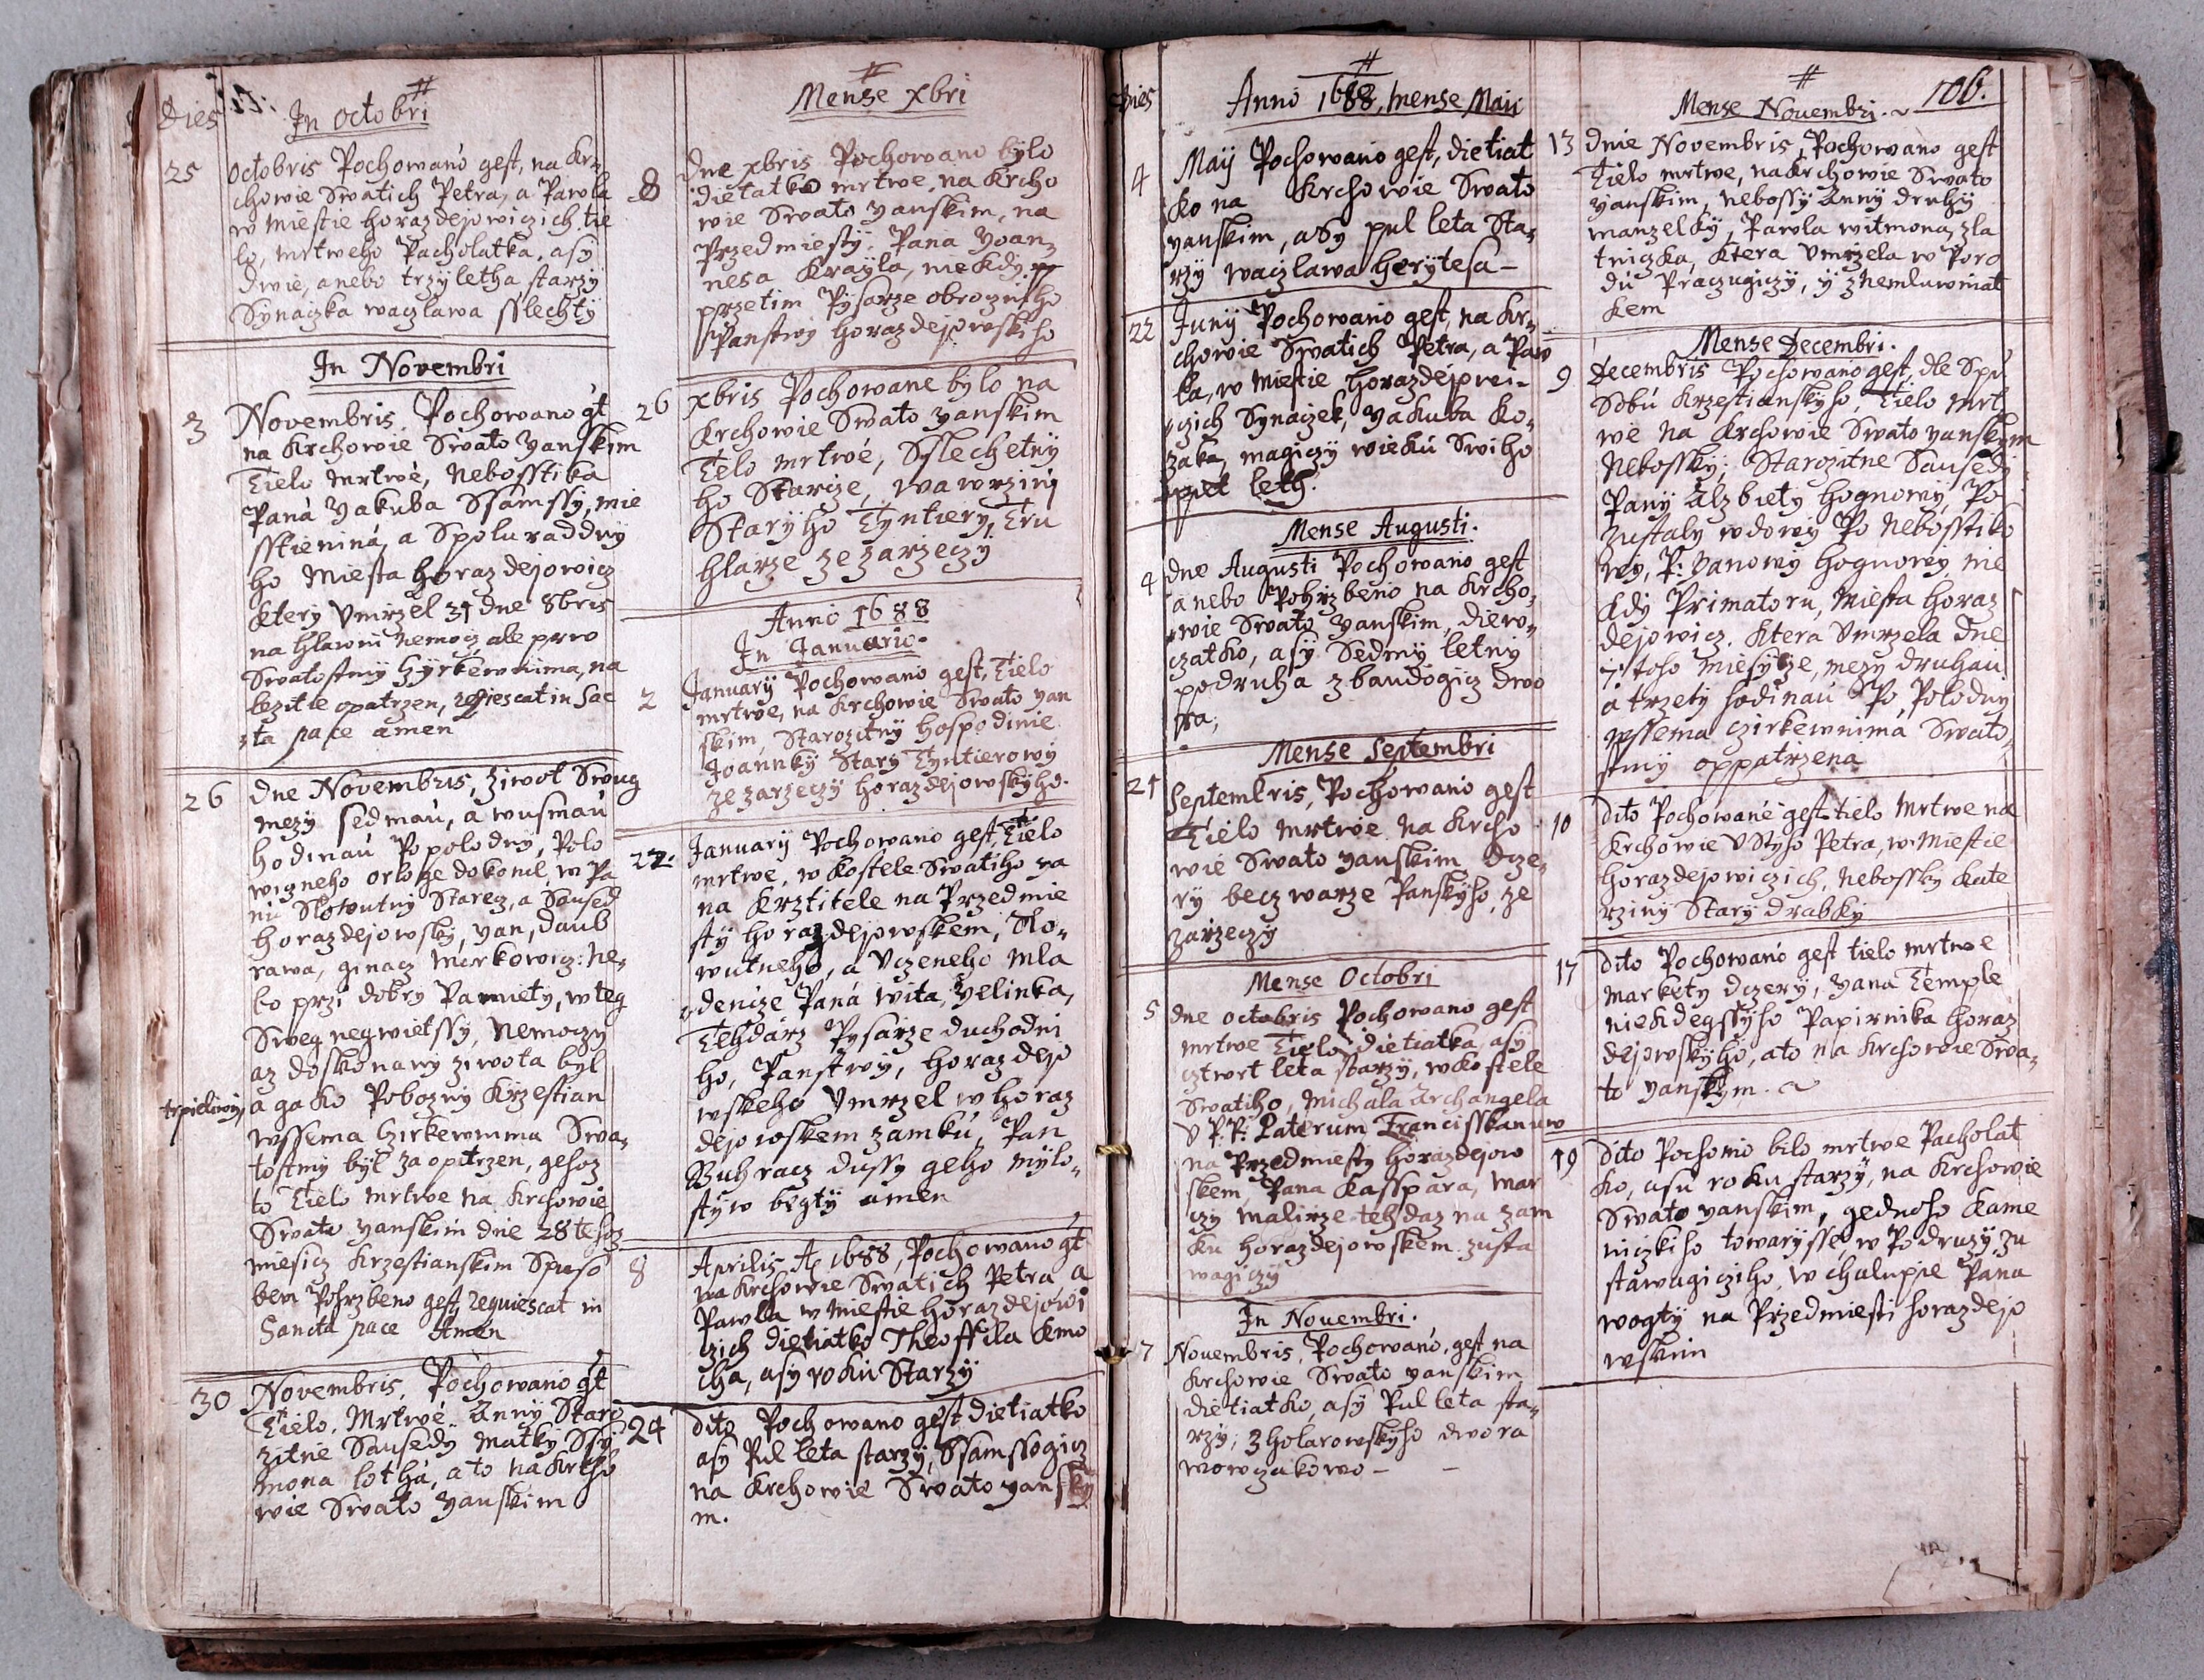 Dies
In octobri
25
octobris Pochowano gest, na Kr„
chowie Swatich Petra, a Pawla
w miestie horazdejowiczich tie
lo, mrtweho Pacholatka. asy
dwie, anebo trzy letha starzy
Synaczka waczlawa sslechty
In Novembri
3
Novembris. Pochowano gt
na Krchowie Swato Yanskim
Tielo mrtwé, Nebosstika
Pana Yakuba Ssamssy, mie
sstienina, a Spoluraddny
ho Miesta horazdejowicz
Ktery Vmrzel 31 dne 8bris
na hlawni Nemocz, ale prwo
Swatostmy Cyrkewnima, na
lezitie opatrzen, reqiescat in Sac
ta pace amen
26
dne Novembris, ziwot Swug
mezy sedmau, a wusmau
hodinau Popolodny, Polo
wigneho orloge dokonal, w Pa
nu Slowutny Starecz, a Saused
horazdejowsky, yan, daub
rawa, ginacz Markowicz: Ne„
bo przi dobry Pamiety, w teg
Sweg negwietssy, Nemoczy
az doskonany ziwota byl
trpieliwy,
a gako Pobozny Krzestian
wssema Czirkewnima Swa„
tostmy byl zaopatrzen, gehoz
to Tielo mrtwe na Krchowie
Swato yanskim dne 28 tehoz
miesicz Krzestianskim Spuso
bem Pohrzbeno gest, requiescat in
Sancta pace Amen
30
Novembris, Pochowano gt
Tielo, Mrtwé. Anny Staro
zitne Sausedy matky Ssy
mona lotha, a to na Krcho
wie Swato Yanskim
Mense Xbri
8
dne xbris Pochowano bylo
dietatko mrtwe, na Krcho
wie Swato yanskim, na
Przedmiesty. Pana yoan„
nesa Krayla, niekdy
przetim Pysarze obrocziho
Panstwy horazdejowskiho
26
xbris Pochowane bylo na
Krchowie Swato yanskim
Telo mrtwé, Sslechetny
ho Starcze, wawrziny
Staryho Tyntiery, Tru
hlarze ze zarzeczy
Anno 1688
In Januario.
2
January Pochowano gest, Tielo
mrtwe, na Krchowie Swato yan
skim, Starozitny hospodinie
Joannky Stary Tyntierowy
ze zarzeczy horazdejowskyho.
22.
January Pochowano gest, Tielo
mrtwe, w Kostele Swatiho ya
na Krztitele na Przedmie
sty horazdejowskem, Slo„
wutneho, a Vczeneho mla
dencze Pana wita, yelinka,
Tehdarz Pysarze duchodni
ho, Panstwy, horazdejo
wskeho Vmrzel w horaz
dejowskem zamku, Pan
Buh racz dussy geho mylo„
styw begty amen
8
Aprilis A 1688, Pochowano gt
na Krchowie Swatich Petra a
Pawla w miestie horazdejowi
czich dietiatko Theoffila Kmo
cha, asy roku Starzy
24
dito Pochowano gest dietiatko
asy Pul leta starzy, Ssamssogicz
na Krchowie Swato yansky
m.
Dies
Anno 1688, mense Maii
4
Maij Pochowano gest, dietiat
ko na Krchowie Swato
yanskim, asy pul leta Sta„
rzy waczlawa herytesa –
22
Junij Pochowano gest, na Kr„
chowie Swatich Petra, a Paw
la, w miestie horazdejowi„
czich Synaczek, Yakuba Ko„
zaka, magiczy wieku Swiho
piet leth.
Mense Augusti.
4
dne Augusti Pochowano gest
anebo Pohrzbeno na Krcho„
wie Swato Yanskim, diew„
czatko, asy Sedmy letny
podruha z baudogicz dwo
ra;
Mense Septembri
21
Septembris, Pochowano gest
Tielo mrtwe na Krcho
wie Swato yanskim dcze„
ry beczwarze Panskyho, ze
zarzeczy
Mense Octobri
5
dne octobris Pochowano gest
mrtwe Tielo dietiatka, asy
cztwrt leta starzy, w kostele
Swatiho, Michala Archangela
V P: P: Paterum Francisskanuw
na Przedmiesty horazdejow
skem, Pana Kasspara, mar
czy malirze tehdaz na zam
ku horazdejowskem zusta
wagiczy
In Nouembri.
7
Nouembris, Pochowano, gest na
Krchowie Swato yanskim
dietiatko, asy Pul leta sta„
rzy; z holarowskyho dwora
wowczakowo –
Mense Nouembri. 106.
13
dnie Novembris, Pochowano gest
Tielo mrtwe, na Krchowie Swato
yanskim, nebossy Anny druhy
manzelky, Pawla witmona, zla
tniczka, Ktera Vmrzela w Poro
du Praczugiczy, y z nemluwniat
kem
Mense Decembri.
9
Decembris Pochowano gest, dle Spu
sobu Krzestianskyho, Tielo mrt
we na Krchowie Swato yanskym
Nebossky: Starozitne Sausedy
Pany Alzbiety hognowy, Po
zustaly wdowy Po Nebosstiko
wy, P: yanowy hognowy, nie
kdy Primatoru, Miesta horaz
dejowicz. Ktera Vmrzela dne
7. toho miesycze, mezy druhau
a trzety hodinau Po Polodny
wssema czirkewnima Swato„
stmy oppatrzena
10
dito Pochowané gest tielo mrtwe na
Krchowie V Styho Petra, w Miestie
horazdejowiczich, nebossky Kate
rziny Stary drabky
17
dito Pochowano gest tielo mrtwe
markety dczery, yana Temple
niekdegssyho Papirnika horaz
dejowskyho, a to na Krchowie Swa„
to yanskym.
19
dito Pochowano bilo mrtwe Pacholat
ko, asu roku starzy, na Krchowie
Swato yanskim, gednoho Kame
niczkiho towarysse, w Podruzy zu
stawugicziho, w chalupie Pana
wogty na Przedmiesti horazdejo
wskim